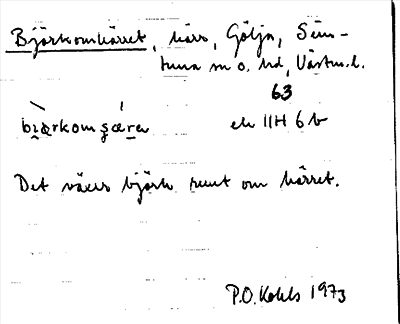 Björkomkärret, kärr, Gölja, Sim-
tuna sn o. hd, Västm.l.
63
bi̯ærkomʂæ̀ra ek 11H 6b
Det växer björk runt om kärret.
P.O. Kohls 1973